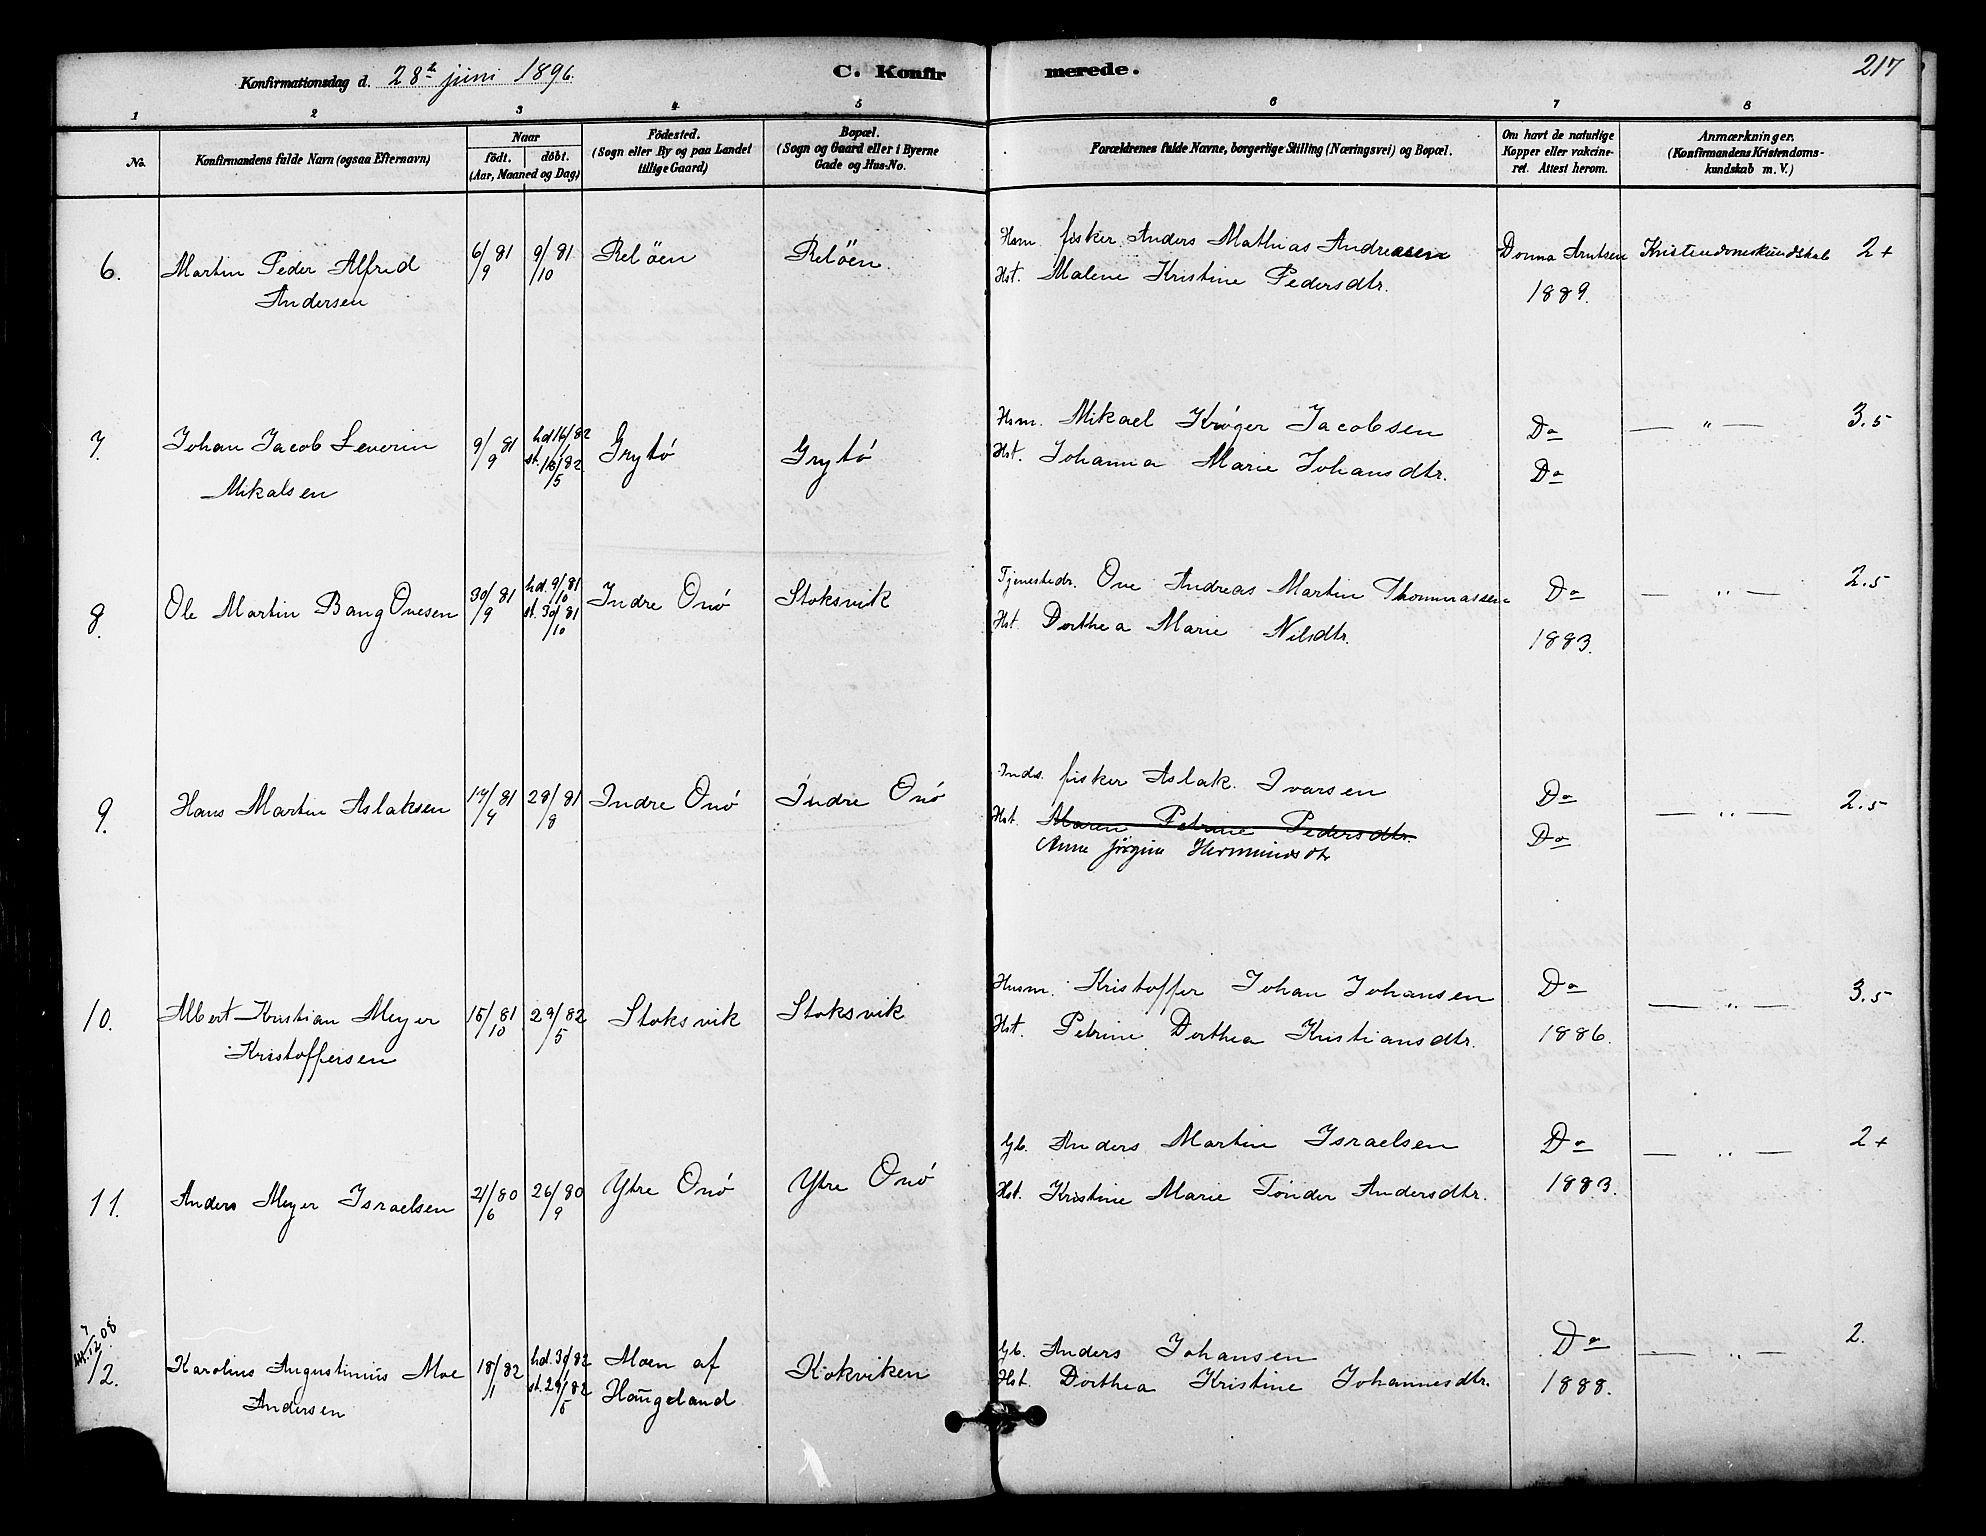 Konfirmationsdag d. 28de juni 1896.
C. Konfirmerede.
217
1 2 3 4 5 6 7 8
No.
Konfirmandens fulde Navn (ogsaa Efternavn)
Naar
födt. döbt.
(Aar, Maaned og Dag)
Födested.
(Sogn eller By og paa Landet
tillige Gaard)
Bopæl.
(Sogn og Gaard eller i Byerne
Gade og Hus-No.
Forældrenes fulde Navne, borgerlige Stilling (Næringsvei) og Bopæl.
Om havt de naturlige
Kopper eller vakcine-
ret. Attest herom.
Anmærkninger.
(Konfirmandens Kristendoms-
kundskab m. V.)
6. Martin Peder Alfred
Andersen
6/9 81 9/10 81 Reløen Reløen
Hsm. fisker Anders Mathias Andreasen
Hst. Malene Kristine Pedersdtr.
Donna Arntsen
1889.
Kristendomskundskab 2+
7. Johan Jacob Severin
Mikalsen
9/9 81 hd. 16/1 82
st. 18/5 82
Grytø Grytø
Hsm. Mikael Krøger Jacobsen
Hst. Johanna Marie Johansdtr.
Do
Do
— „ — 3.5
8. Ole Martin Bang Ovesen
30/9 81 hd. 9/10 81
st. 30/10 81
Indre Onø Stoksvik
Tjenestedr. Ove Andreas Martin Thommassen
Hst. Dorthea Marie Nilsdtr.
Do
1883.
— „ — 2.5
9. Hans Martin Aslaksen
17/4 81 28/8 81 Indre Onø Indre Onø
Inds. fisker Aslak Ivarsen
Hst. Maren Petrine Pedersdtr.
Anne Jørgine Hermundsdtr
Do
Do
— „ — 2.5
10. Albert Kristian Meyer
Kristoffersen
15/10 81 29/5 82 Stoksvik Stoksvik
Husm. Kristoffer Johan Johansen
Hst. Petrine Dorthea Kristiansdtr.
Do
1886.
— „ — 3.5
11. Anders Meyer Israelsen
21/6 80 26/9 80 Ytre Onø Ytre Onø
Gb. Anders Martin Israelsen
Hst. Kristine Marie Tønder Andersdtr.
Do
1883.
— „ — 2+
12. Karolius Augustinius Moe
Andersen
18/1 82 hd. 30/ 82
st. 29/5 82
Moen af
Haugeland
Kokviken
Gb. Anders Johansen
Hst. Dorthea Kristine Johannesdtr.
Do
1888.
— „ — 2.